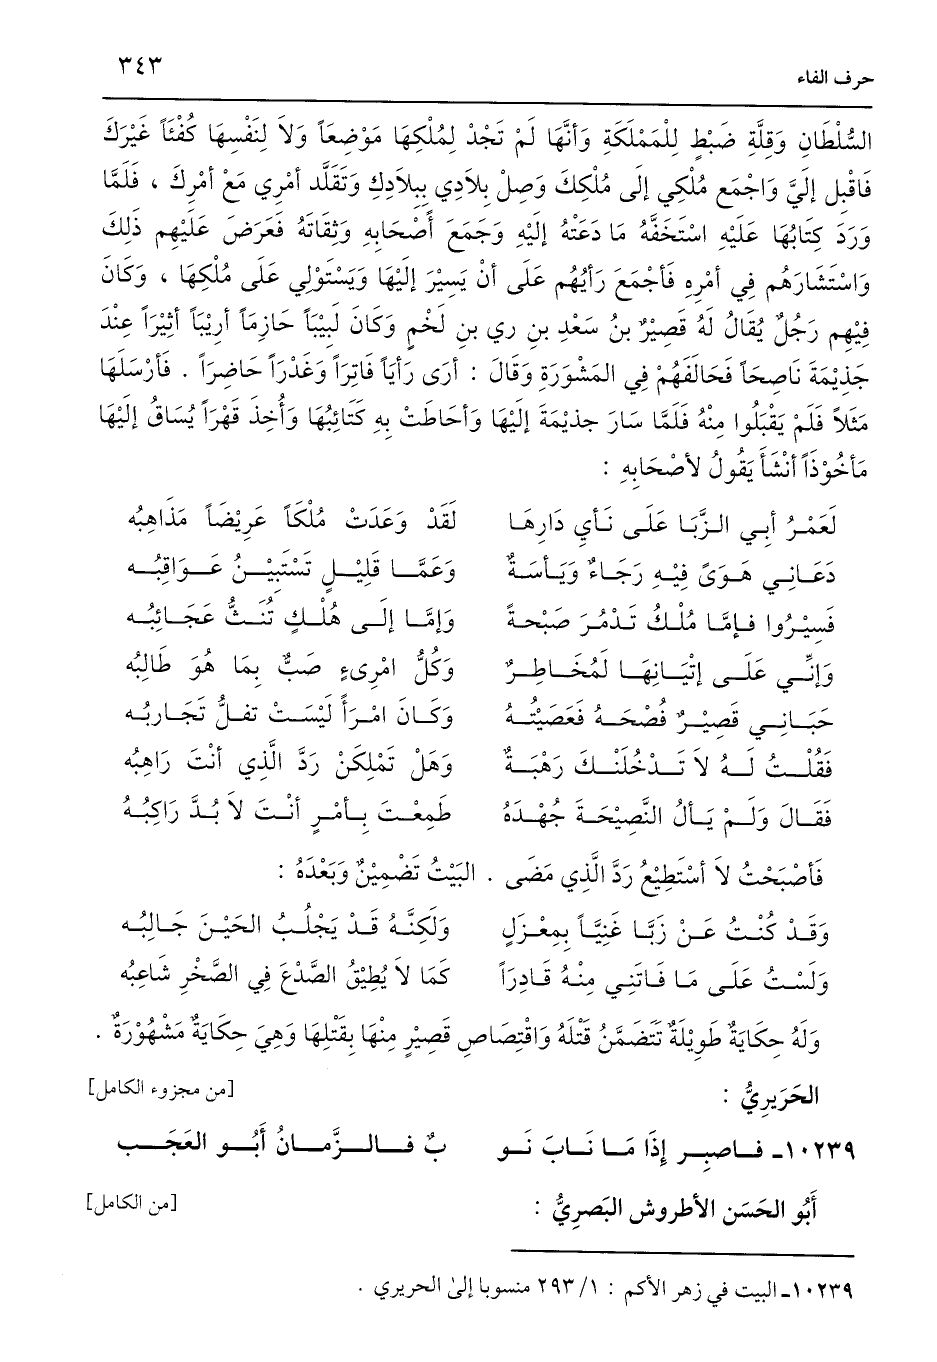 حرف الفاء ٣٤٣
السُّلْطَانِ وَقِلَّةِ ضَبْطٍ لِلْمَمْلَكَةِ وَأَنَّهَا لَمْ تَجِدْ لِمُلْكِهَا مَوْضِعَاً وَلاَ لِنَفْسِهَا كُفْئَاً غَيْرَكَ
فَاقْبِل إِلَيَّ وَاجْمَع مُلْكِي إِلَى مُلْكِكَ وَصِلْ بِلاَدِي بِبِلاَدِكَ وَتَقَلَّد أَمْرِي مَعْ أَمْرِكَ ، فَلَمَّا
وَرَدَ كِتَابُهَا عَلَيْهِ اسْتَخَفَّهُ مَا دَعَتْهُ إِلَيْهِ وَجَمَعَ أَصْحَابِهِ وَثِقَاتَهُ فَعَرَضَ عَلَيْهِم ذَلِكَ
وَاسْتَشَارَهُم فِي أَمْرِهِ فَأَجْمَعَ رَأْيُهُم عَلَى أَنْ يَسِيْرَ إِلَيْهَا وَيَسْتَوْلِي عَلَى مُلْكِهَا ، وَكَانَ
فِيْهِم رَجُلٌ يُقَالُ لَهُ قَصِيْرُ بنُ سَعْدِ بنِ ري بنِ لَخْمٍ وَكَانَ لَبِيْبَاً حَازِمَاً أَرِيْبَاً أَثِيْرَاً عِنْدَ
جَذِيْمَةَ نَاصِحَاً فَخَالَفَهُمْ فِي المَشُوَرَةِ وَقَالَ : أَرَى رَأْيَاً فَاتِرَاً وَغَدْرَاً حَاضِرَاً . فَأَرْسَلَهَا
مَثَلاً فَلَمْ يَقْبَلُوا مِنْهُ فَلَمَّا سَارَ جذِيْمَةَ إِلَيْهَا وَأَحَاطَتْ بِهِ كَتَائِبُهَا وَأُخِذَ قَهْرَاً يُسَاقُ إِلَيْهَا
مَأخُوْذَاً أَنْشَأَ يَقُولُ لأَصْحَابِهِ :
لَعَمْرُ أَبِي الزَّبَا عَلَى نَأي دَارِهَا لَقَدْ وَعَدَتْ مُلْكَاً عَرِيْضَاً مَذَاهِبُه
دَعَانِي هَوَىً فِيْهِ رَجَاءٌ وَيَأسَةٌ وَعَمَّا قَلِيْلٍ تَسْتَبِيْنُ عَوَاقِبُه
فَسِيْرُوا فَإِمَّا مُلْكُ تَدْمُرَ صَبْحَةً وَإِمَّا إِلَى هُلْكٍ تُنَثُّ عَجَائِبُه
وَإِنِّي عَلَى إِتْيَانِهَا لَمُخَاطِرٌ وَكُلُّ امْرِىءٍ صَبٌّ بِمَا هُوَ طَالِبُه
حَبَانِي قَصِيْرٌ نُصْحَهُ فَعَصَيْتُهُ وَكَانَ امْرَأً لَيْسَتْ تفَلُّ تَجَارِبُه
فَقُلْتُ لَهُ لاَ تَدْخُلَنْكَ رَهْبَةٌ وَهَلْ تَمْلِكَنْ رَدَّ الَّذِي أَنْتَ رَاهِبُه
فَقَالَ وَلَمْ يَألُ النَّصِيْحَةَ جُهْدَهُ طَمِعْتَ بِأَمْرٍ أَنْتَ لاَ بُدَّ رَاكِبُهُ
فَأَصْبَحْتُ لاَ أَسْتَطِيْعُ رَدَّ الَّذِي مَضَى . البَيْتُ تَضْمِيْنٌ وَبَعْدَهُ :
وَقَدْ كُنْتُ عَنْ زَبَّا غَنِيَّاً بِمَعْزَلٍ وَلَكِنَّهُ قَدْ يَجْلُبُ الحَيْنَ جَالِبُه
وَلَسْتُ عَلَى مَا فَاتَنِي مِنْهُ قَادِرَاً كَمَا لاَ يُطِيْقُ الصَّدْعَ فِي الصَّخْرِ شَاعِبُه
وَلَهُ حِكَايَةٌ طَوِيْلَةٌ تَتَضَمَّنُ قَتْلَهُ وَاقْتِصَاصِ قَصِيْرٍ مِنْهَا بِقَتْلِهَا وَهِيَ حِكَايَةٌ مَشْهُوْرَةٌ .
الحَرِيرِيُّ : [من مجزوء الكامل]
١٠٢٣٩ـ فَاصبِر إِذَا مَا نَابَ نَو بٌ فَالزَّمَانُ أَبُو العَجَب
أَبُو الحَسَنِ الأطروش البَصرِيُّ : [من الكامل]
١٠٢٣٩ـ البيت في زهر الأكم : ١/ ٢٩٣ منسوبا إلىٰ الحريري .